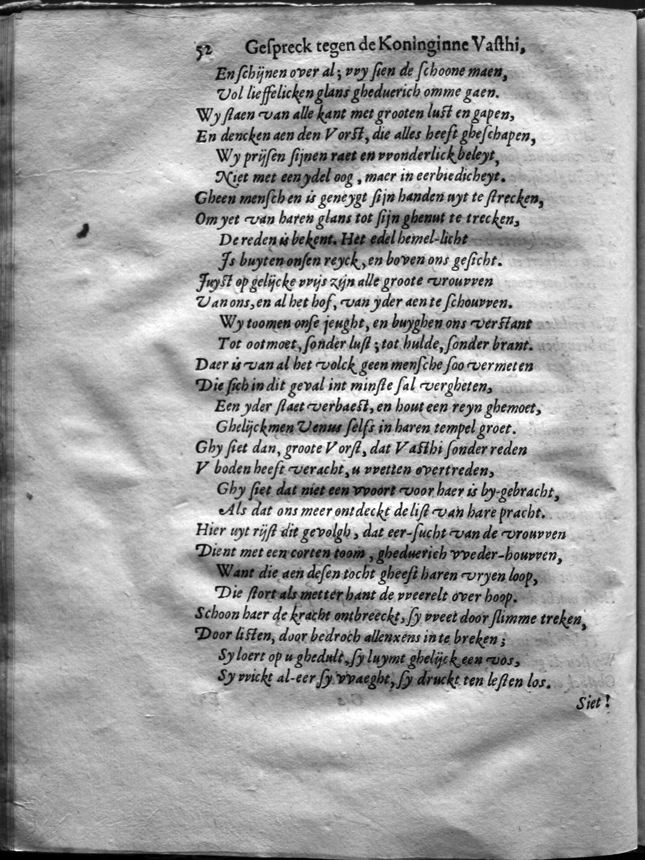 52 Geſpreck tegen de Koninginne Vaſthi,
En ſchijnen over al; vvy ſien de ſchoone maen,
Vol lieffelicken glans gheduerich omme gaen.
Wy ſtaen van alle kant met grooten luſt en gapen,
En dencken aen den Vorſt, die alles heeft gheſchapen,
Wy prijſen ſijnen raet en vvonderlick beleyt,
Niet met een ydel oog, maer in eerbiedicheyt.
Gheen menſchen is geneygt ſijn handen uyt te ſtrecken,
Om yet van haren glans tot ſijn ghenut te trecken,
De reden is bekent. Het edel hemel-licht
Js buyten onſen reyck, en boven ons geſicht.
Juyſt op gelijcke vvijs zijn alle groote vrouvven
Van ons, en al het hof, van yder aen te ſchouvven.
Wy toomen onſe jeught, en buyghen ons verſtant
Tot ootmoet, ſonder luſt; tot hulde, ſonder brant.
Daer is van al het volck geen menſche ſoo vermeten
Die ſich in dit geval int minſte ſal vergheten,
Een yder ſtaet verbaeſt, en hout een reyn ghemoet,
Ghelijckmen Venus ſelfs in haren tempel groet.
Ghy ſiet dan, groote Vorſt, dat Vaſthi ſonder reden
V boden heeft veracht, u vvetten overtreden,
Ghy ſiet dat niet een vvoort voor haer is by-gebracht,
Als dat ons meer ontdeckt de liſt van hare pracht.
Hier uyt rijſt dit gevolgh, dat eer-ſucht van de vrouvven
Dient met een corten toom, gheduerich vveder-houvven,
Want die aen deſen tocht gheeft haren vryen loop,
Die ſtort als metter hant de vveerelt over hoop.
Schoon haer de kracht ontbreeckt, ſy vveet door ſlimme treken,
Door liſten, door bedroch allenxens in te breken;
Sy loert op u ghedult, ſy luymt ghelijck een vos,
Sy vvickt al-eer ſy vvaeght, ſy druckt ten leſten los.
Siet!